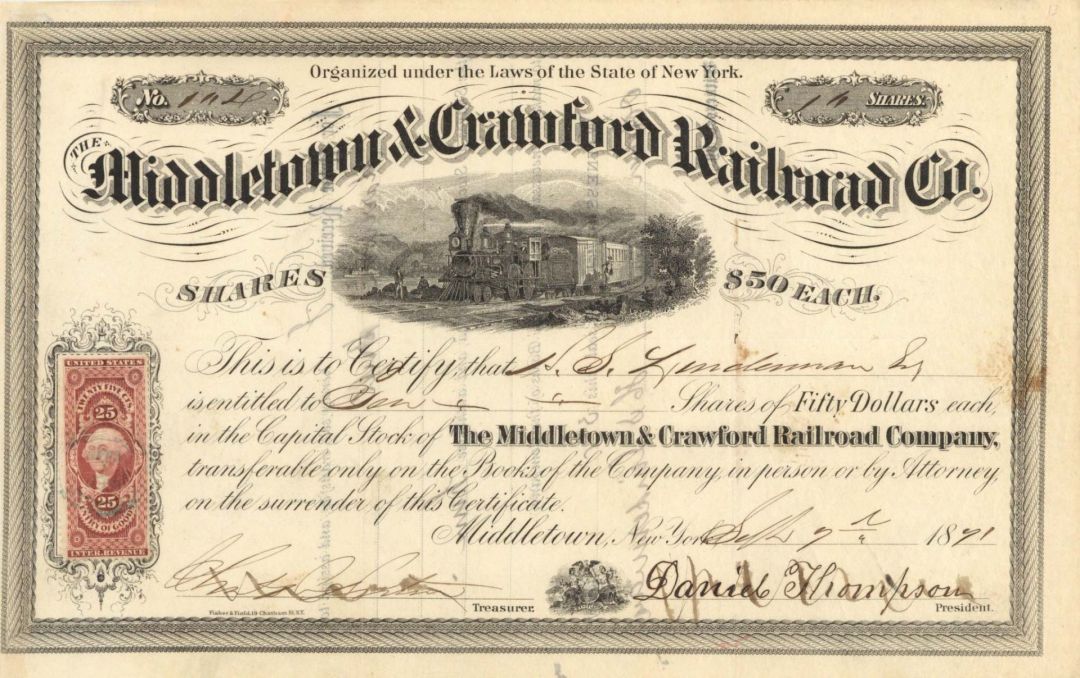 Organized under the Laws of the State of New York.
No.
SHARES.
THE
Middletown & Crawford Railroad Co.
SHARES $50 EACH.
This is to Certify, that
is entitled to Ten Shares of Fifty Dollars each,
in the Capital Stock of The Middletown & Crawford Railroad Company,
transferable only on the Books of the Company, in person or by Attorney,
on the surrender of this Certificate.
Middletown, New York Sept 7th 1871
Treasurer.
Daniel Thompson
President.
Fisher & Field, 19 Chatham St. N.Y.
UNITED STATES
TWENTY FIVE
25
25
INTER. REVENUE